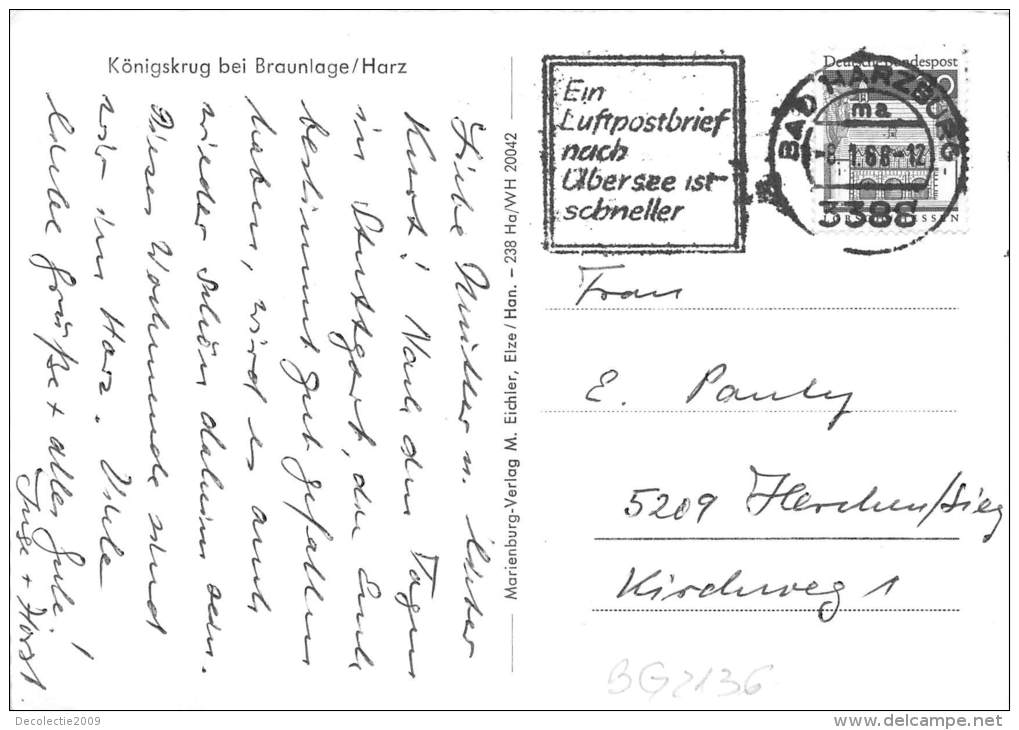 Königskrug bei Braunlage/Harz
Liebe Mutter u. lieber
Kurt! Nach den Tagen
in Stuttgart, die Euch
bestimmt gut gefallen
haben, wird es auch
wieder schön daheim sein.
Dieses Wochenende sind
wir im Harz. Viele
liebe Grüße + alles Gute!
Inge + Horst.
Marienburg-Verlag M. Eichler, Elze/Han. – 238 Ha/WH 20042
Ein
Luftpostbrief
nach
Übersee ist
schneller
Deutsche Bundespost
BAD HARZBURG
ma
-8.1.68-12
3388
Frau
E. Pauly
5209 Herchen/Sieg
Kirchweg 1
BG2136
Decolectie2009
www.delcampe.net